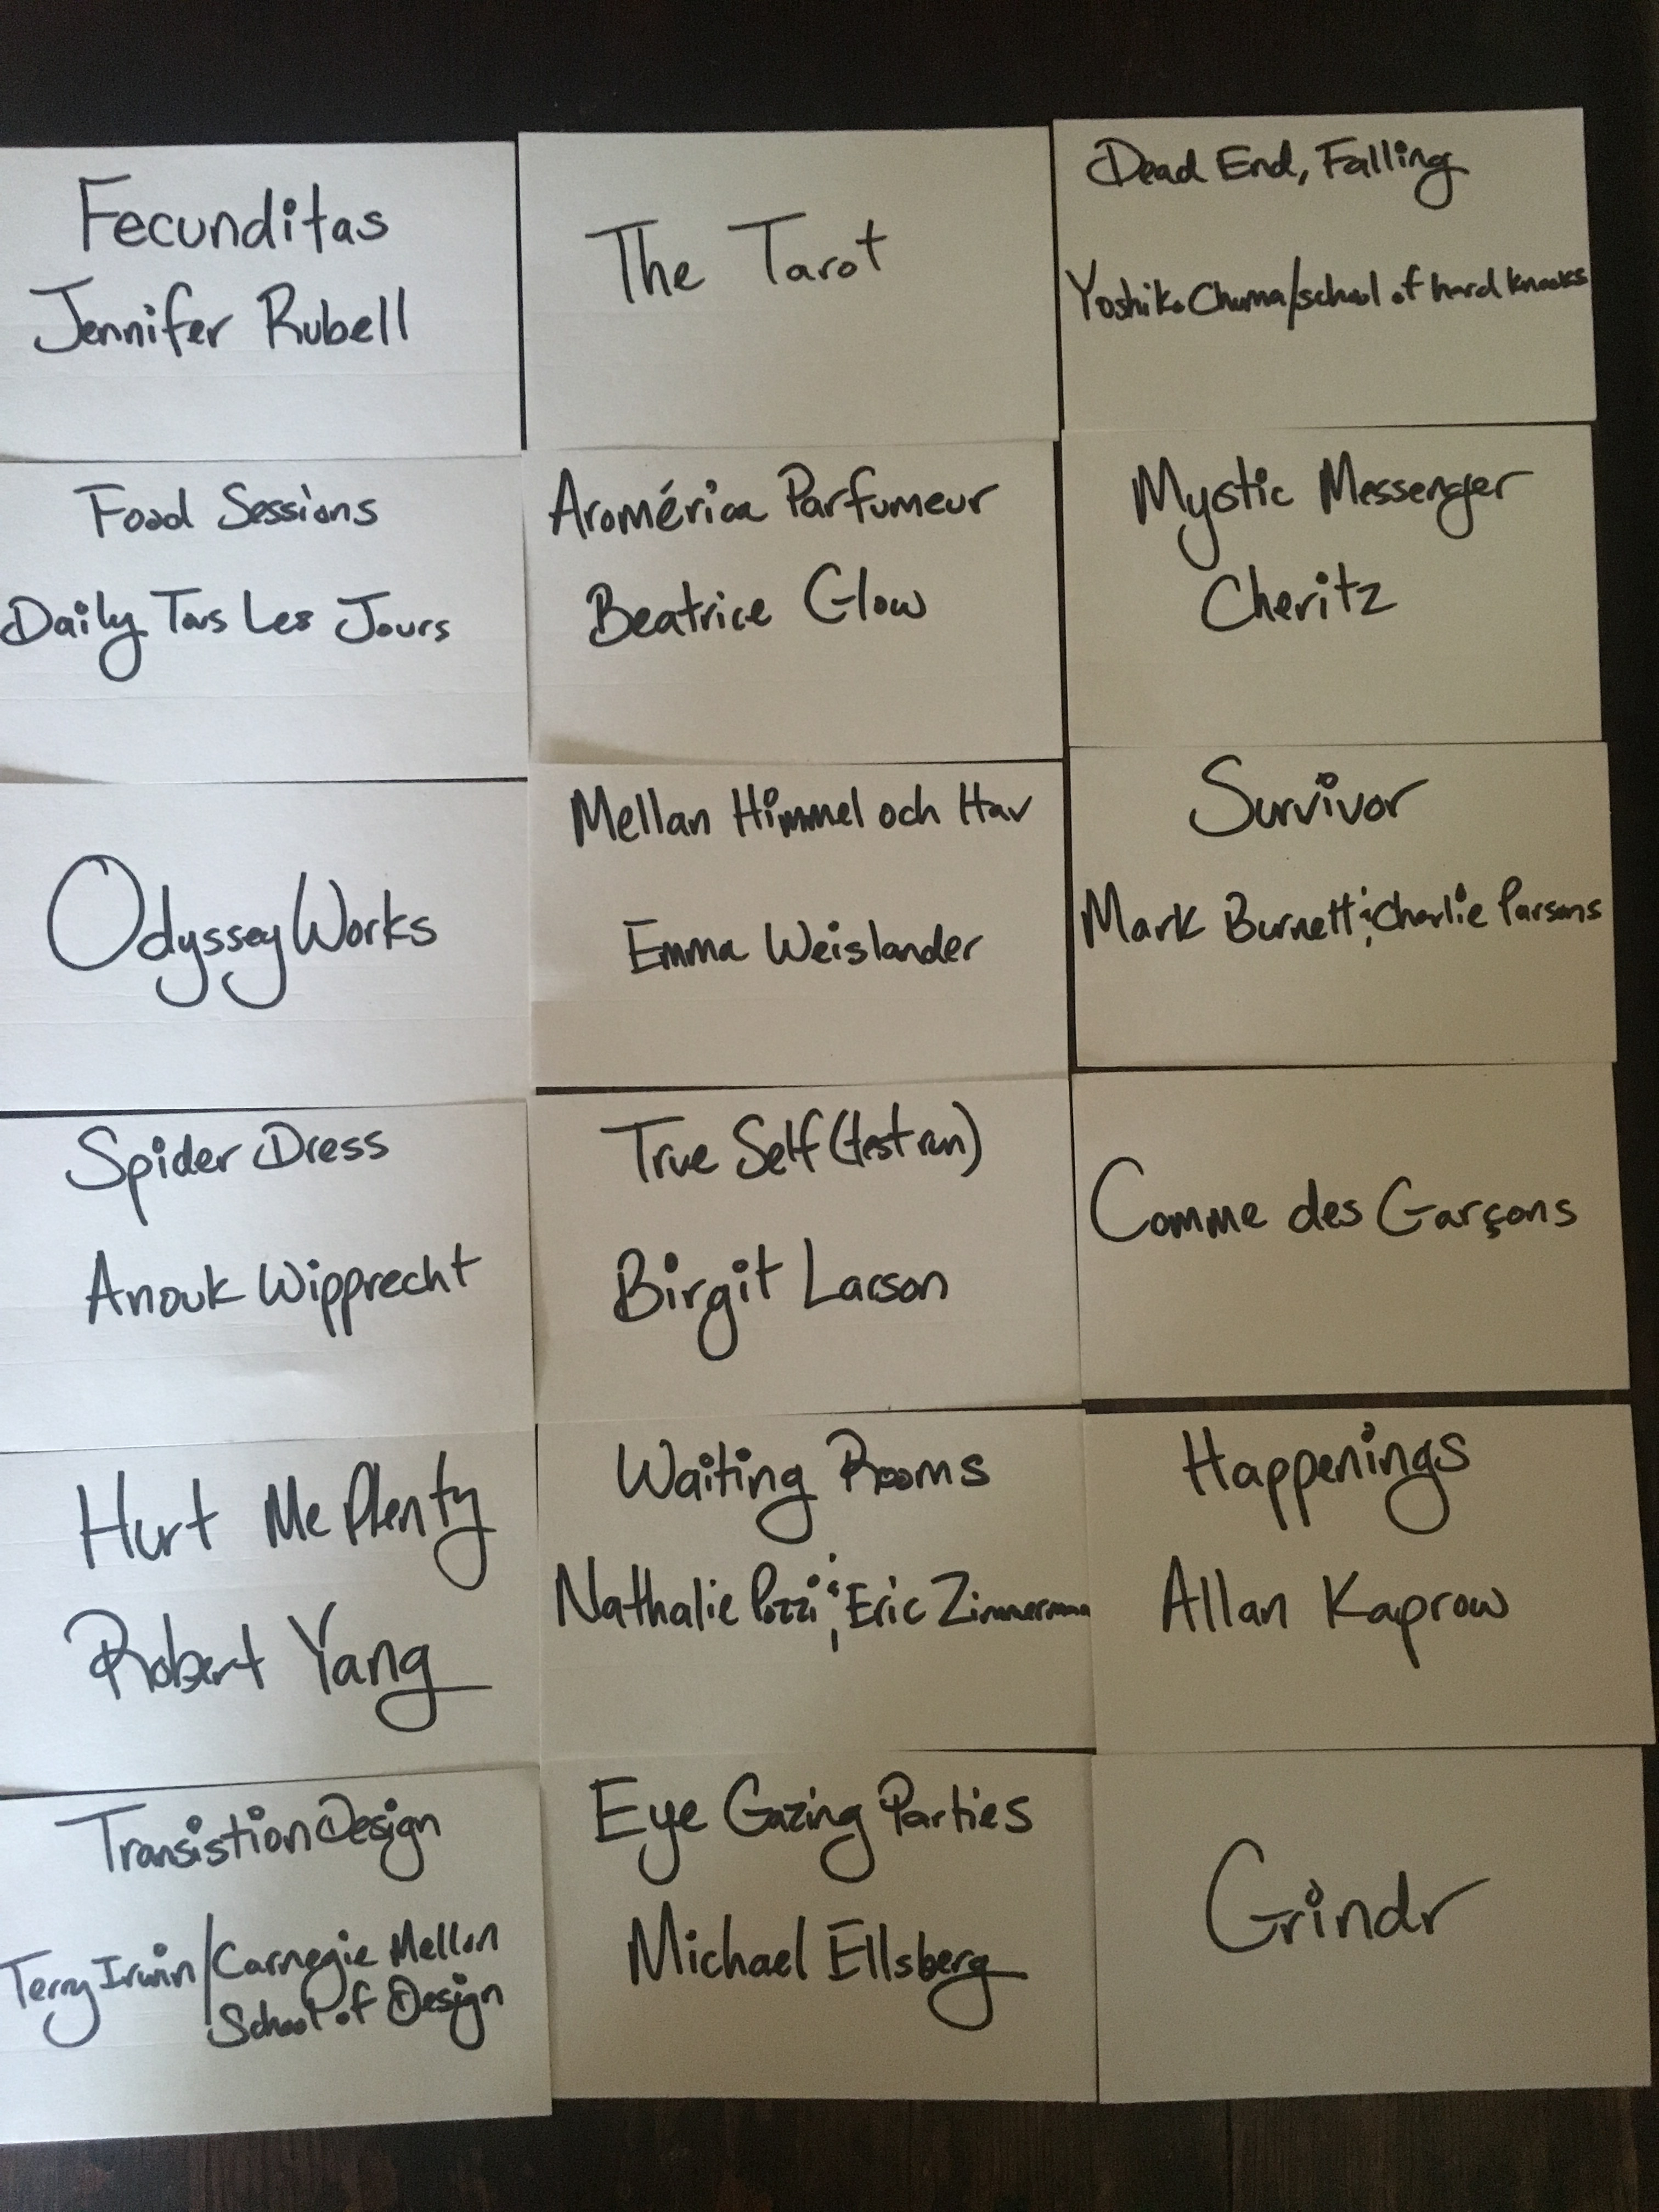 Fecunditas
Jennifer Rubell
The Tarot
Dead End, Falling
Yoshiko Chuma/school of hard knocks
Food Sessions
Daily Tous Les Jours
Aromérica Parfumeur
Beatrice Glow
Mystic Messenger
Cheritz
Odyssey Works
Mellan Himmel och Hav
Emma Weislander
Survivor
Mark Burnett & Charlie Parsons
Spider Dress
Anouk Wipprecht
True Self (test run)
Birgit Larson
Comme des Garçons
Hurt Me Plenty
Robert Yang
Waiting Rooms
Nathalie Pozzi & Eric Zimmerman
Happenings
Allan Kaprow
Transistion Design
Terry Irwin/Carnegie Mellon
School of Design
Eye Gazing Parties
Michael Ellsberg
Grindr